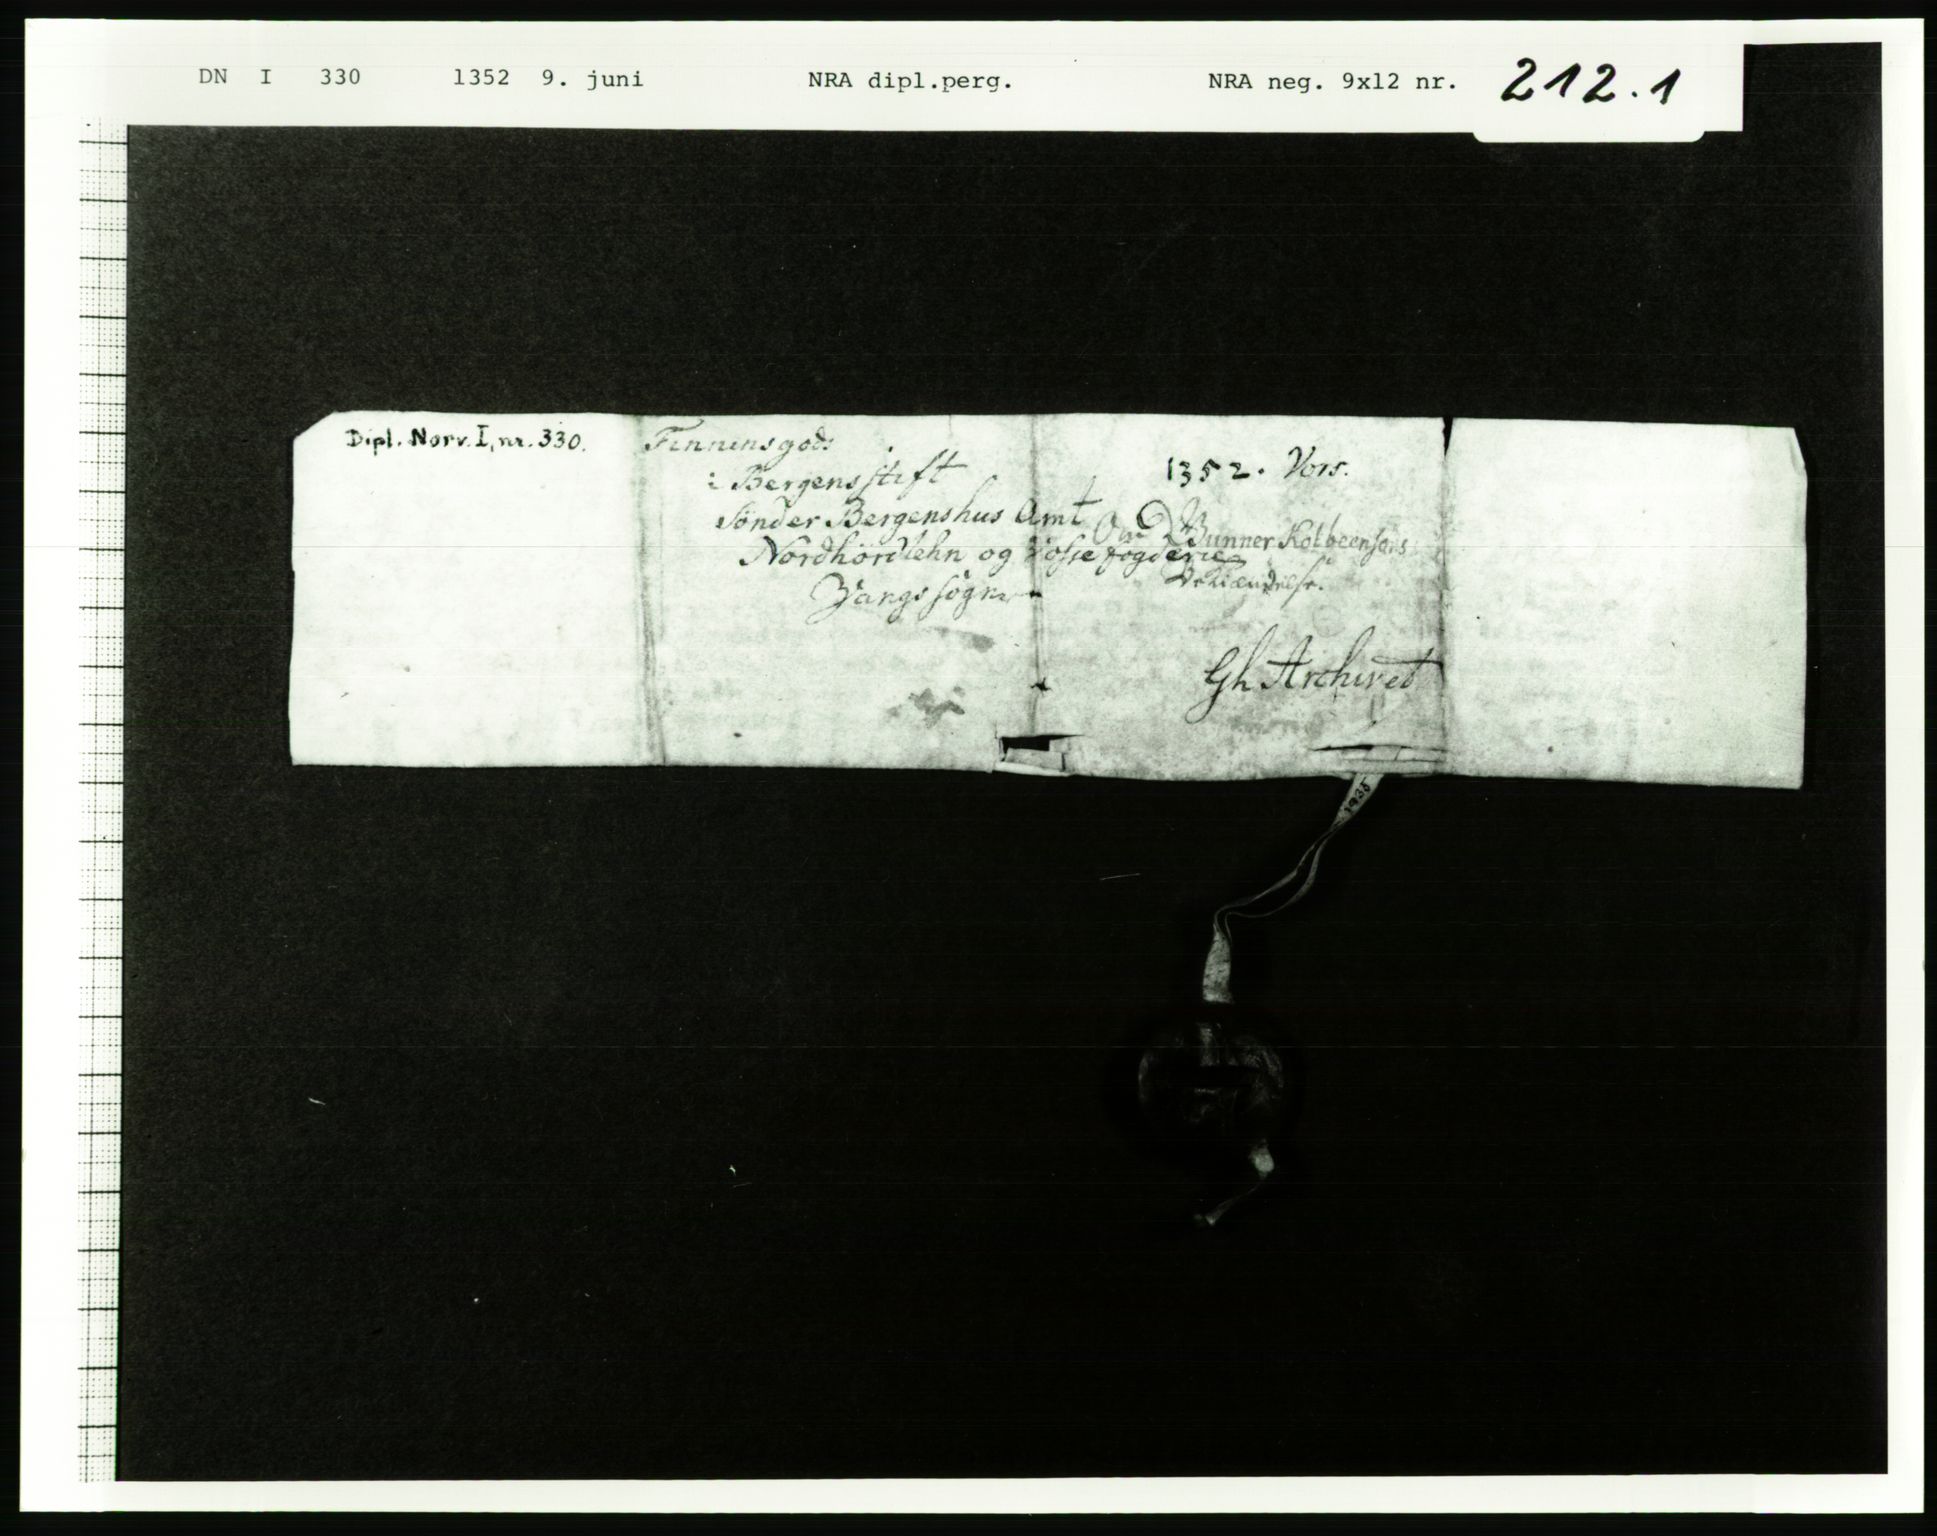 DN I 330 1352 9. juni NRA dipl.perg. NRA neg. 9x12 nr. 212.1
Dipl. Norv. I, nr. 330.
Finnensgods
i Bergens stift
Sönder Bergenshus Amt
Nordhördlehn og Vosse fogderie
Vangs sogn
1352. Vors.
Gunner Kolbeensøns
Bekiændelse.
Gh Archivet
1935